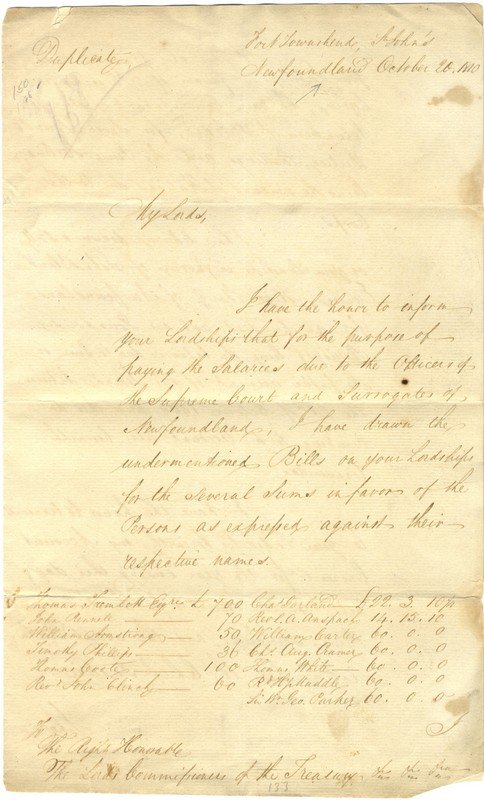 Duplicate
Fort Townshend, St John's
Newfoundland October 20, 1810
My Lords,
I have the honor to inform
your Lordships that for the purpose of
paying the Salaries due to the Officers of
the Supreme Court and Surrogates of
Newfoundland, I have drawn the
undermentioned Bills on your Lordships
for the Several Sums in favor of the
Persons as expressed against their
respective names.
Thomas Tremlett Esqre £ 700 Chas Garland £22. 3. 10
John 70 Revd L. A. Anspach 14. 15. 10
William Armstrong 50, William Carter 60. 0. 0
Timothy Phillips 36 Chs. Aug. Cramer 60. 0. 0
Thomas Coote 100 Thomas White 60. 0. 0
Revd John Clinch 60 Rd Hy Muddle 60. 0. 0
Sir Wm Geo. Parker 60. 0. 0
I
To
The Right Honorable
The Lords Commissioners of the Treasury
133